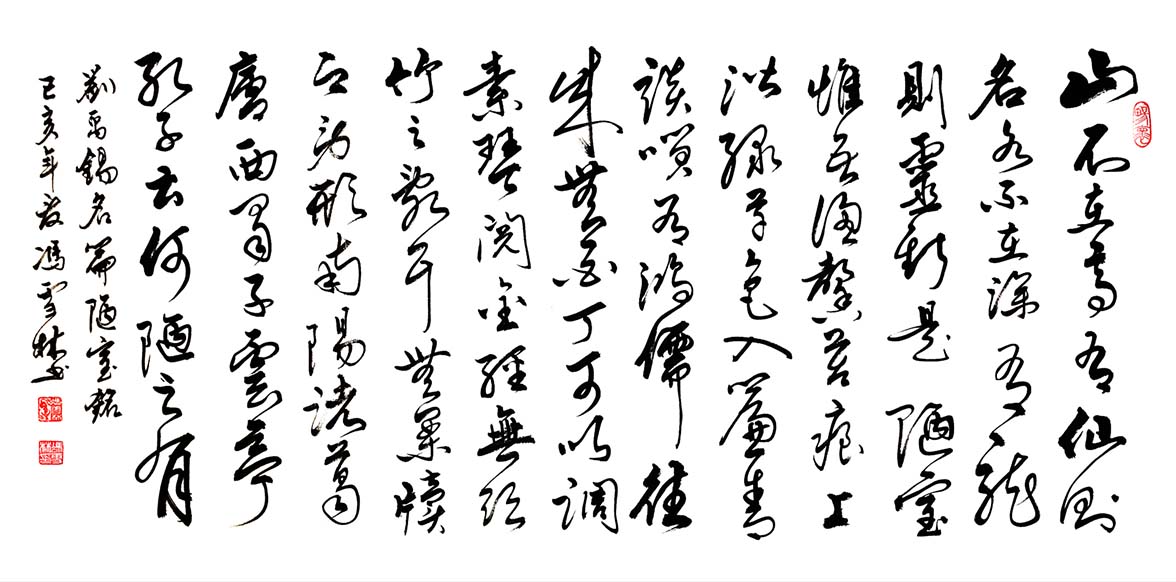 山不在高有仙則
名水不在深有龍
則靈斯是陋室
惟吾德馨苔痕上
階綠草色入簾青
談笑有鴻儒往
來無白丁可以調
素琴閱金經無絲
竹之亂耳無案牘
之勞形南陽諸葛
廬西蜀子雲亭
孔子云何陋之有
劉禹錫名篇陋室銘
己亥年馮雪林书